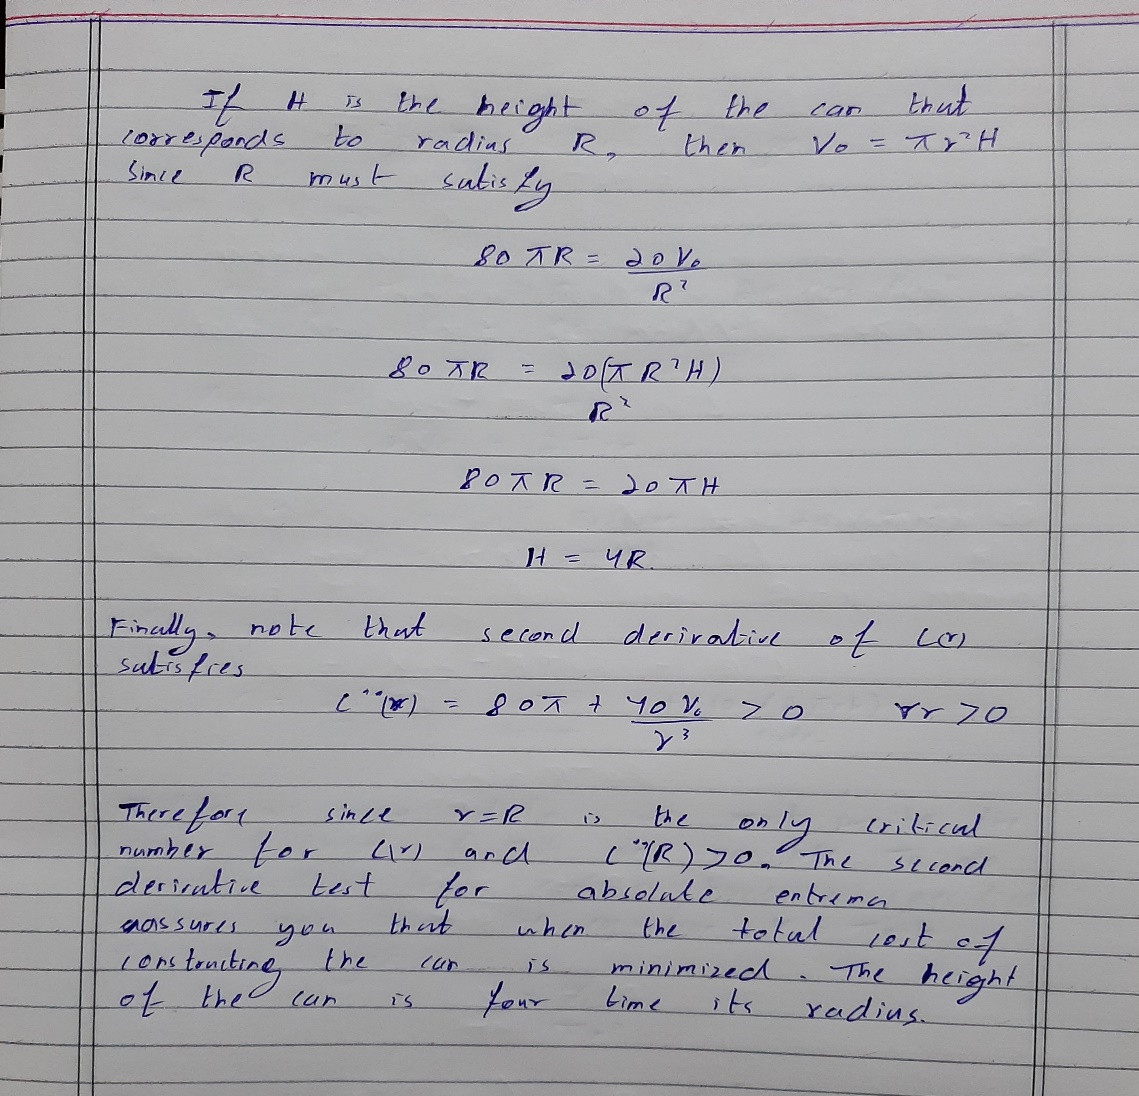 If H is the height of the can that
corresponds to radius R, then V₀ = πr²H
Since R must satisfy
80πR = 20V₀
R²
80πR = 20(πR²H)
R²
80πR = 20πH
H = 4R.
Finally, note that second derivative of C(r)
satisfies
C''(r) = 80π + 40V₀ > 0 ∀r >0
r³
Therefore since r=R is the only critical
number for C(r) and C''(R)>0. The second
derivative test for absolute extrema
assures you that when the total cost of
constructing the can is minimized. The height
of the can is four time its radius.